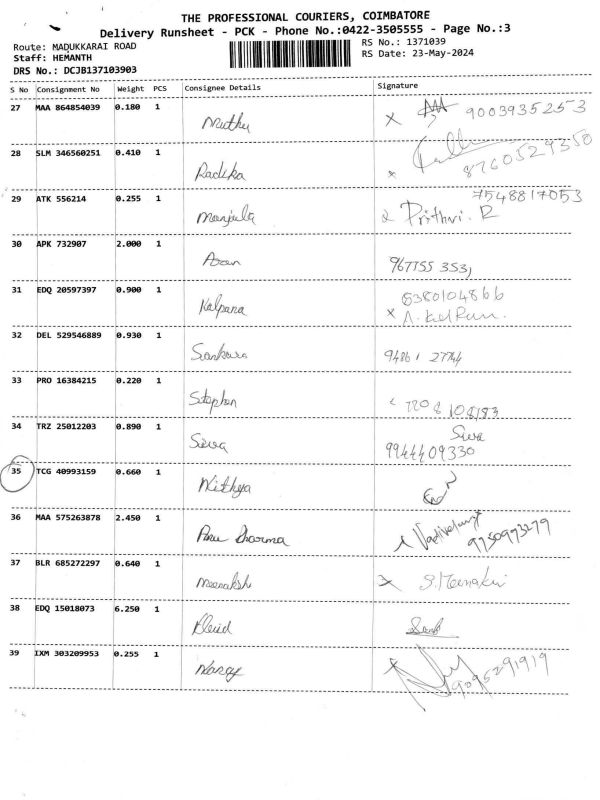 THE PROFESSIONAL COURIERS, COIMBATORE
Delivery Runsheet - PCK - Phone No.:0422-3505555 - Page No.:3
Route: MADUKKARAI ROAD
RS No.: 1371039
Staff: HEMANTH
RS Date: 23-May-2024
DRS No.: DCJB137103903
S No Consignment No Weight PCS Consignee Details Signature
27 MAA 864854039 0.180 1 Muthu x 90039352553
28 SLM 346560251 0.410 1 Radika x 8760529350
29 ATK 556214 0.255 1 Manjula Prithvi. R 7548817053
30 APK 732907 2.000 1
31 EDQ 20597397 0.900 1 Kalpana 6380104866
x
32 DEL 529546889 0.930 1 Sankara 94861 27744
33 PRO 16384215 0.220 1 Stephen 7208108183
34 TRZ 25012203 0.890 1 Siva Siva
9944409330
35 TCG 40993159 0.660 1 Nithya
36 MAA 575263878 2.450 1 Dharma 9750973279
37 BLR 685272297 0.640 1 Meenakshi x
38 EDQ 15018073 6.250 1
39 IXM 303209953 0.255 1 Nancy x 9095291919